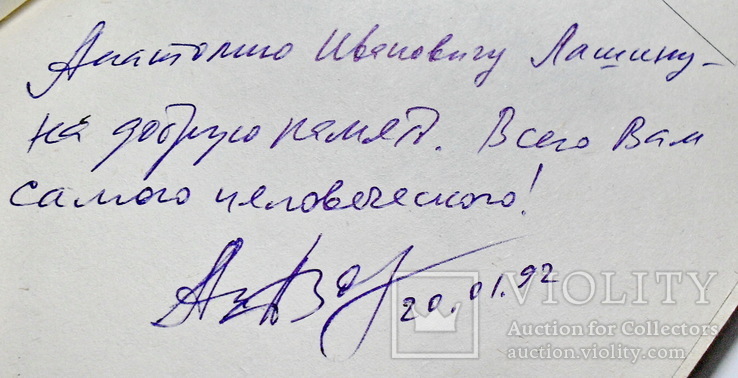 Анатолию Ивановичу Лашину -
на добрую память. Всего Вам
самого человеческого!
20.01.92
VIOLITY
Auction for Collectors
auction.violity.com